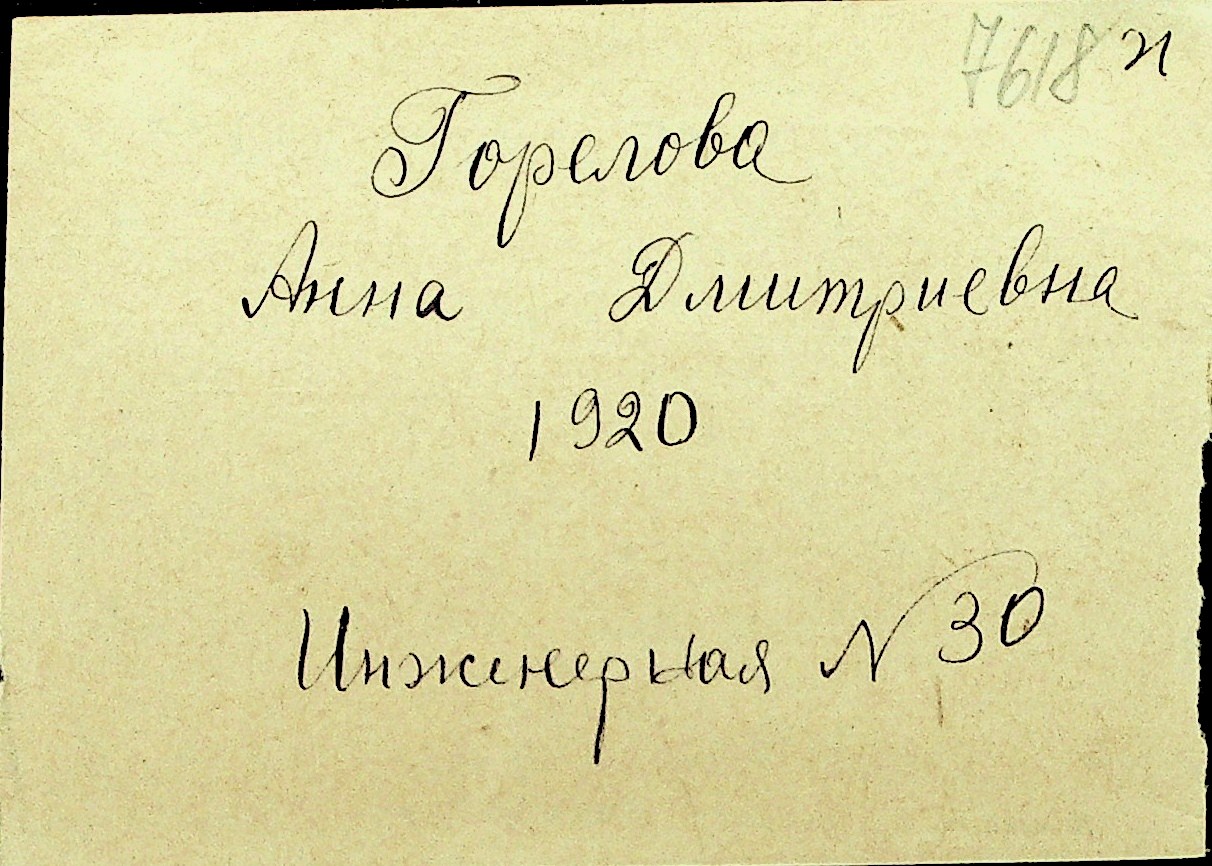 7618 и
Горелова
Анна Дмитриевна
1920
Инженерная № 30